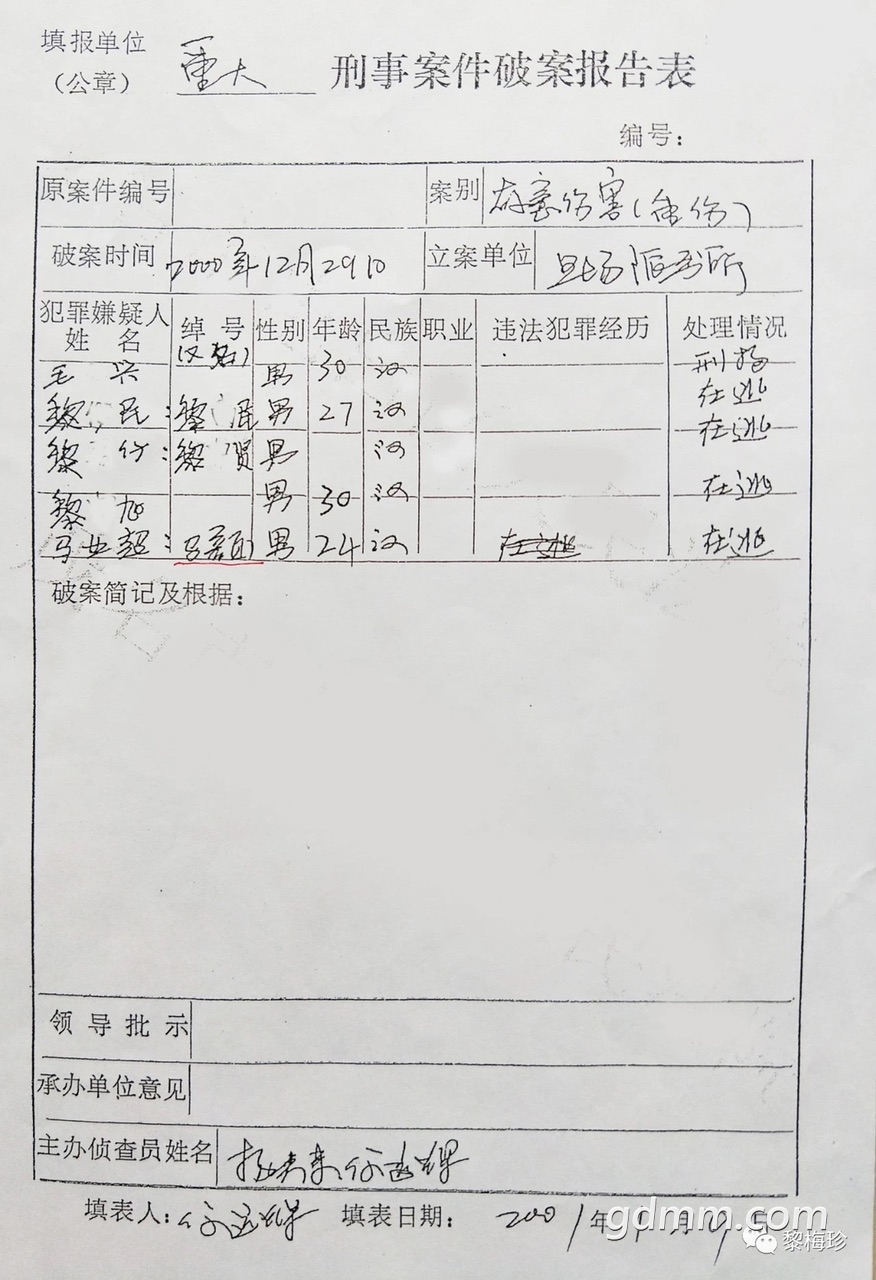 填报单位
(公章) 重大 刑事案件破案报告表
编号：
原案件编号 案别 故意伤害(重伤)
破案时间 2000年12月29日 立案单位 旦场派出所
犯罪嫌疑人姓名 绰号 性别 年龄 民族 职业 违法犯罪经历 处理情况
毛 兴 男 30 汉 刑拘
黎 民： 黎 男 27 汉 在逃
黎 ： 黎 贤 男 汉 在逃
黎 旭 男 30 汉 在逃
马业超： 男 24 汉 在逃 在逃
破案简记及根据：
领导批示
承办单位意见
主办侦查员姓名
填表人： 填表日期： 2001年 月 日
gdmm.com
黎梅珍